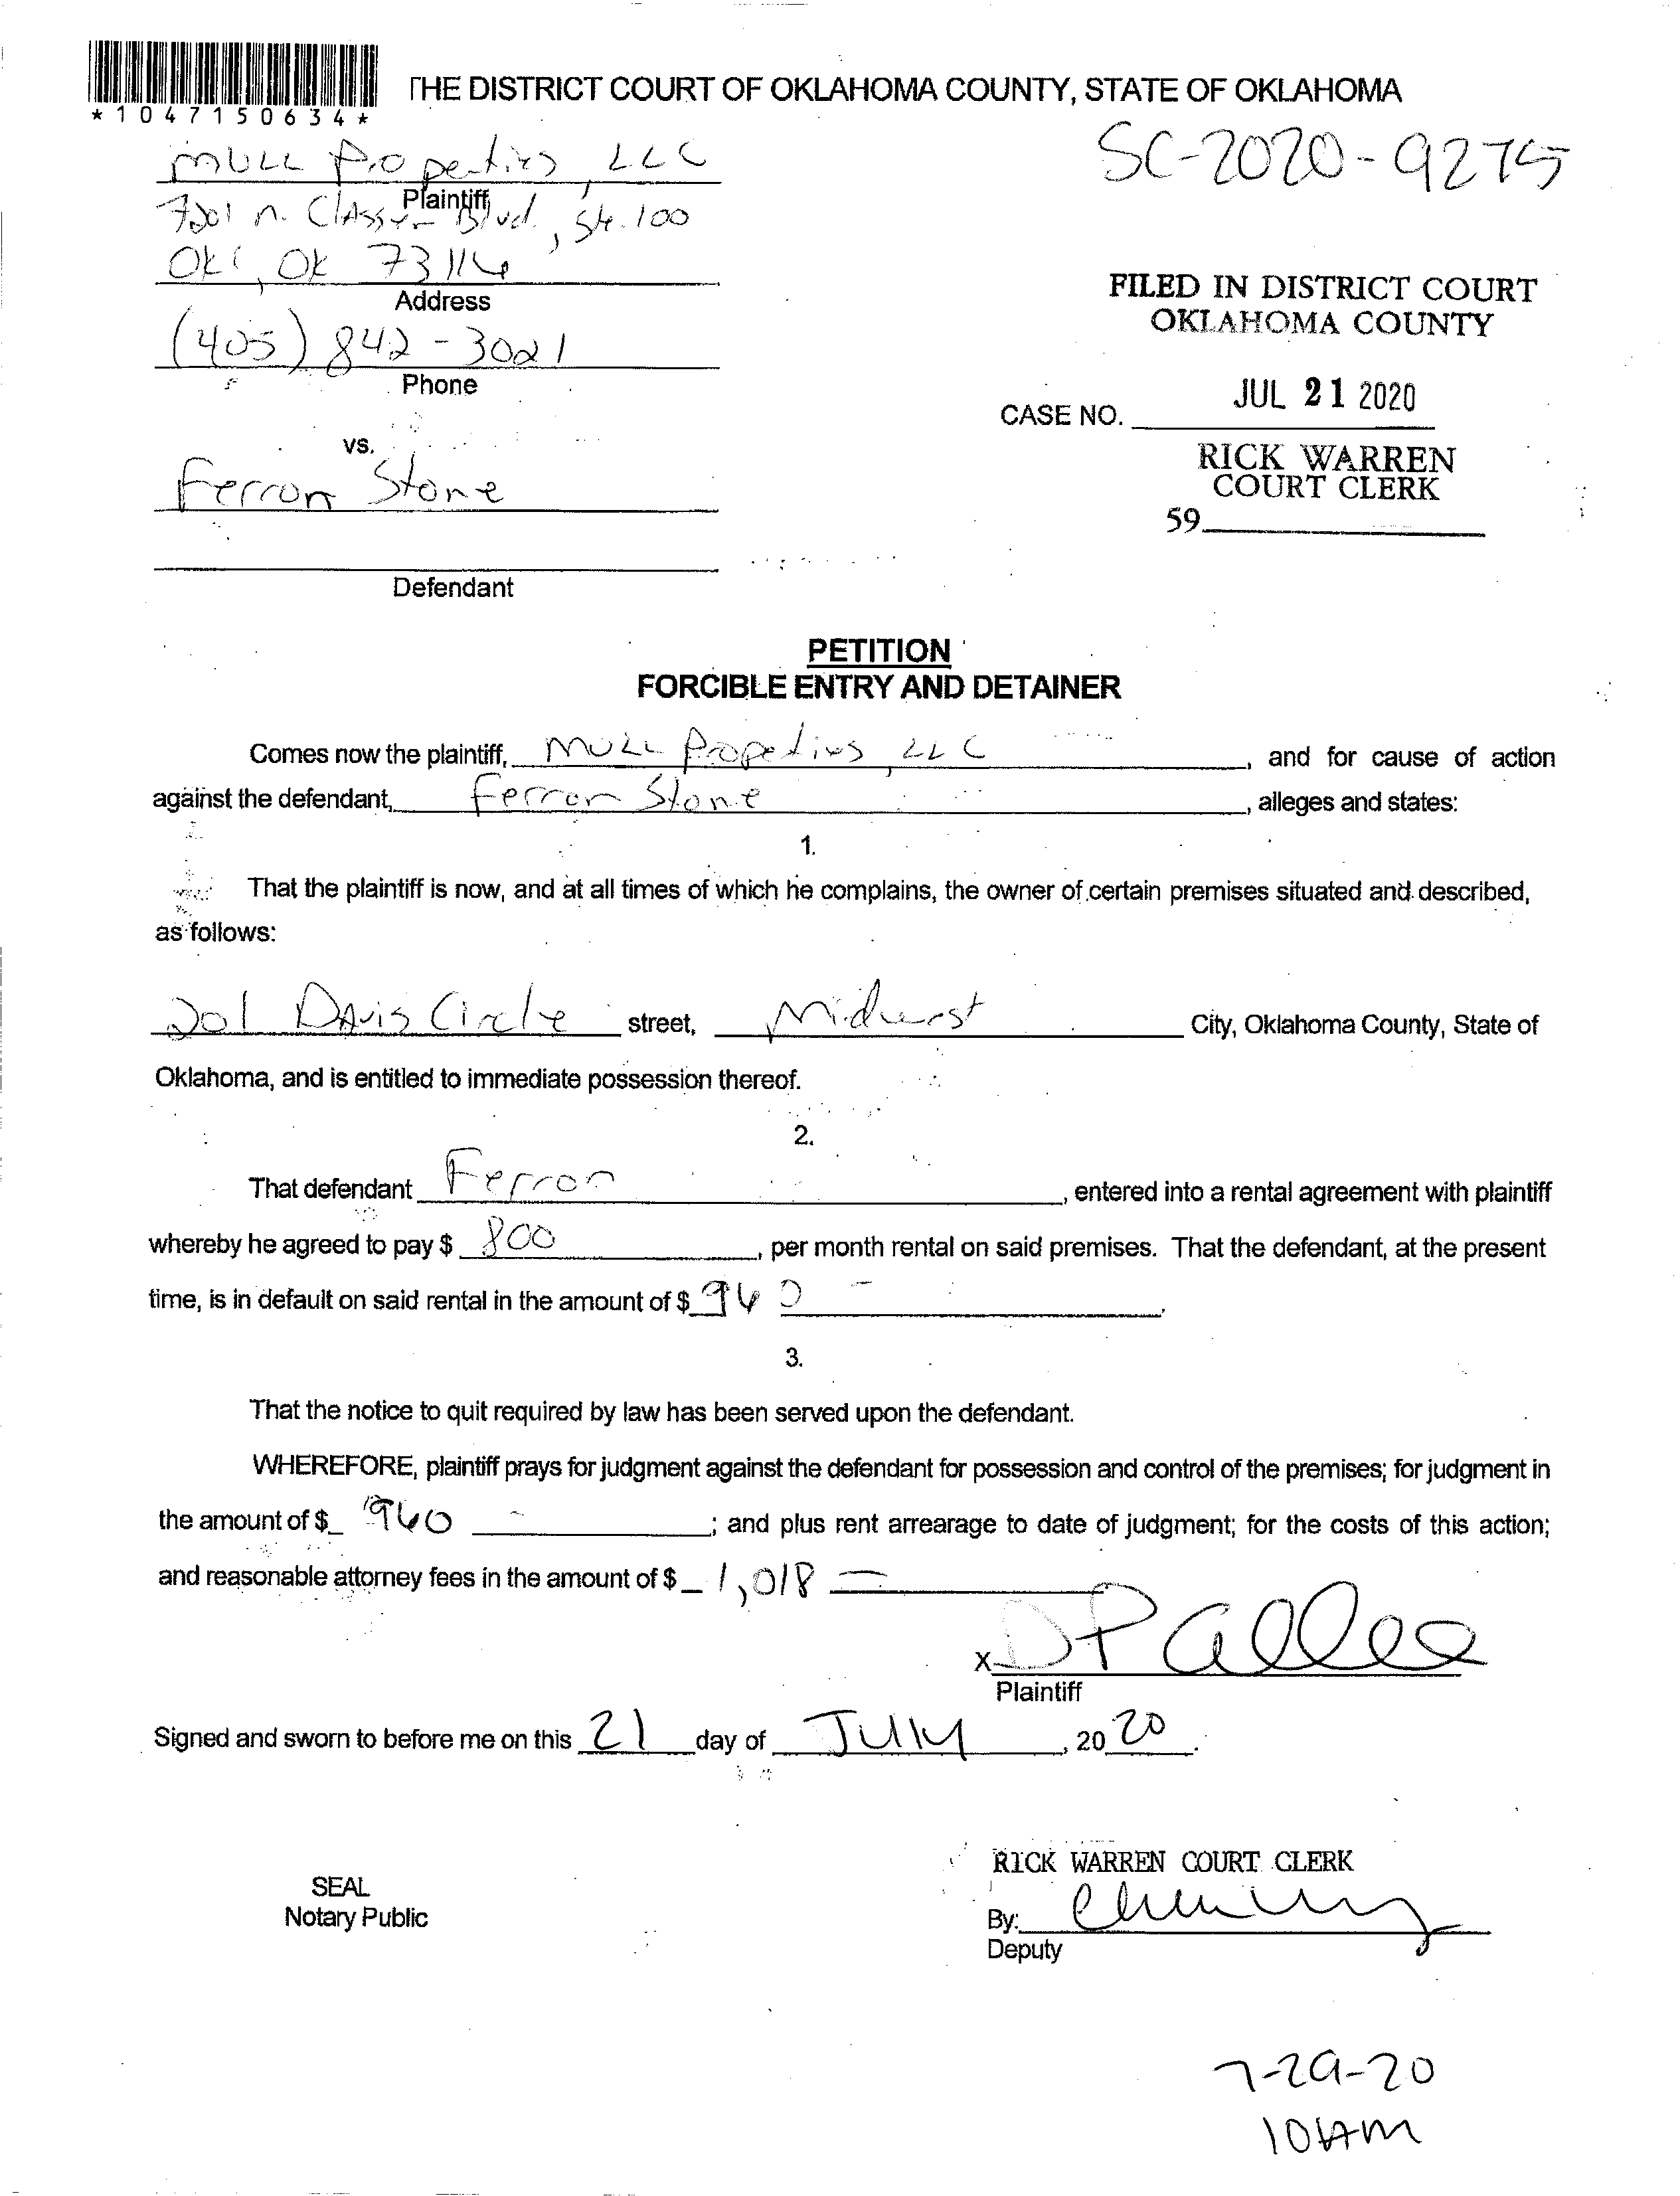 *1047150634*
THE DISTRICT COURT OF OKLAHOMA COUNTY, STATE OF OKLAHOMA
SC-2020-9275
MULL Properties, LLC
Plaintiff
7201 n. Classen Blvd., Ste. 100
OKC, OK 73116
Address
(405) 842-3021
Phone
FILED IN DISTRICT COURT
OKLAHOMA COUNTY
JUL 21 2020
CASE NO.
RICK WARREN
COURT CLERK
59
vs.
Ferron Stone
Defendant
PETITION
FORCIBLE ENTRY AND DETAINER
Comes now the plaintiff, MULL Properties, LLC, and for cause of action
against the defendant, Ferron Stone, alleges and states:
1.
That the plaintiff is now, and at all times of which he complains, the owner of certain premises situated and described,
as follows:
201 Davis Circle street, Midwest City, Oklahoma County, State of
Oklahoma, and is entitled to immediate possession thereof.
2.
That defendant Ferron, entered into a rental agreement with plaintiff
whereby he agreed to pay $ 800, per month rental on said premises. That the defendant, at the present
time, is in default on said rental in the amount of $ 960 -.
3.
That the notice to quit required by law has been served upon the defendant.
WHEREFORE, plaintiff prays for judgment against the defendant for possession and control of the premises; for judgment in
the amount of $ 960 -; and plus rent arrearage to date of judgment; for the costs of this action;
and reasonable attorney fees in the amount of $ 1,018 -
X DP Allee
Plaintiff
Signed and sworn to before me on this 21 day of July, 2020.
SEAL
Notary Public
RICK WARREN COURT CLERK
By:
Deputy
7-29-20
10AM